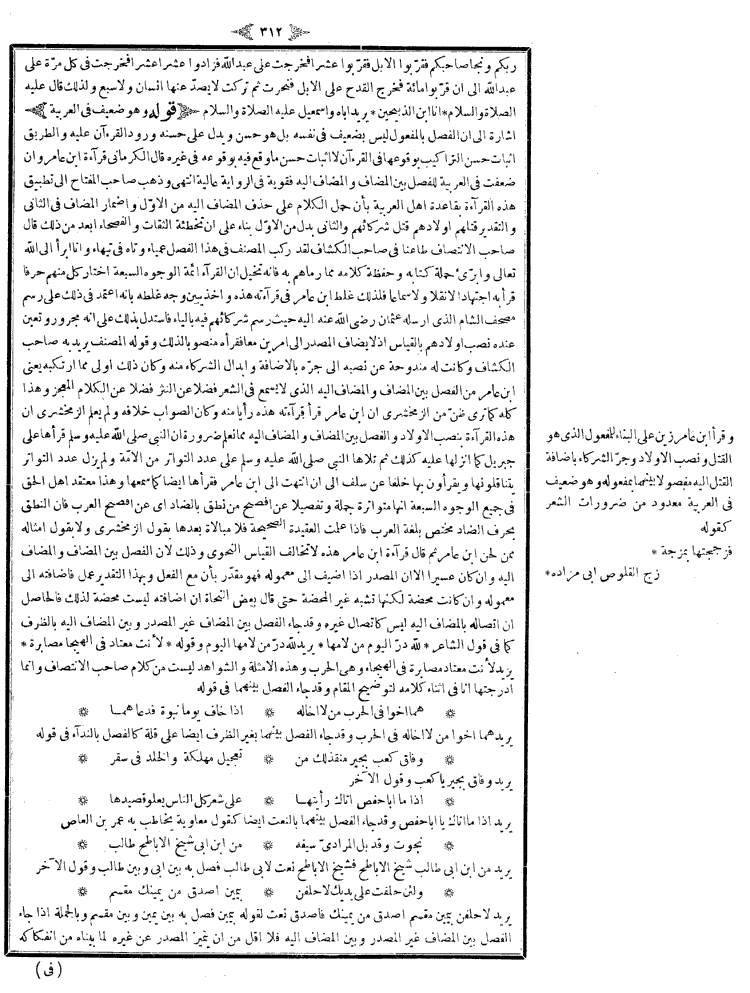 ٣١٢
ربكم ونجا صاحبكم فقربوا الابل فقربوا عشرا فخرجت على عبدالله فزادوا عشرا عشرا فخرجت فى كل مرة على
عبدالله الى ان قربوا مائة فخرج القدح على الابل فنحرت ثم تركت لا يصد عنها انسان ولا سبع ولذلك قال عليه
الصلاة والسلام * انا ابن الذبيحين * يريد اباه واسمعيل عليه الصلاة والسلام ﴿ قوله وهو ضعيف فى العربية ﴾
اشارة الى ان الفصل بالمفعول ليس بضعيف فى نفسه بل هو حسن ويدل على حسنه ورود القرءآن عليه والطريق
اثبات حسن التراكيب بوقوعها فى القرءآن لا اثبات حسن ما وقع فيه بوقوعه فى غيره قال الكرمانى قرآءة ابن عامر وان
ضعفت فى العربية للفصل بين المضاف والمضاف اليه فقوية فى الرواية عالية انتهى وذهب صاحب المفتاح الى تطبيق
هذه القرآءة بقاعدة اهل العربية بأن حمل الكلام على حذف المضاف اليه من الاول واضمار المضاف فى الثانى
والتقدير قتلهم اولادهم قتل شركائهم والثانى بدل من الاول بناء على ان تخطئة الثقات والفصحاء ابعد من ذلك قال
صاحب الانتصاف طاعنا فى صاحب الكشاف لقد ركب المصنف فى هذا الفصل عمياء وتاه فى تيهاء وانا ابرأ الى الله
تعالى وابرئ حملة كتابه وحفظة كلامه مما رماهم به فانه تخيل ان القرآء ائمة الوجوه السبعة اختار كل منهم حرفا
قرأ به اجتهادا لا نقلا ولا سماعا فلذلك غلط ابن عامر فى قرآءته هذه واخذ يبين وجه غلطه بانه اعتمد فى ذلك على رسم
مصحف الشام الذى ارسله عثمان رضى الله عنه اليه حيث رسم شركائهم فيه بالياء فاستدل بذلك على انه مجرور وتعين
عنده نصب اولادهم بالقياس اذ لا يضاف المصدر الى امرين معا فقرأه منصوبا لذلك وقوله المصنف يريد به صاحب
الكشاف وكانت له مندوحة عن نصبه الى جره بالاضافة وابدال الشركاء منه وكان ذلك اولى مما ارتكبه يعنى
ابن عامر من الفصل بين المضاف والمضاف اليه الذى لا يسمع فى الشعر فضلا عن النثر فضلا عن الكلام المعجز وهذا
كله كما ترى ظن من الزمخشرى ان ابن عامر قرأ قرآءته هذه رأيا منه وكان الصواب خلافه ولم يعلم الزمخشرى ان
هذه القرآءة بنصب الاولاد والفصل بين المضاف والمضاف اليه مما نعلم ضرورة ان النبى صلى الله عليه وسلم قرأها على
جبريل كما انزلها عليه كذلك ثم تلاها النبى صلى الله عليه وسلم على عدد التواتر من الائمة ولم يزل عدد التواتر
يتناقلونها ويقرأون بها خلفا عن سلف الى ان انتهت الى ابن عامر فقرأها ايضا كما سمعها وهذا معتقد اهل الحق
فى جميع الوجوه السبعة انها متواترة جملة وتفصيلا عن افصح من نطق بالضاد اى عن افصح العرب فان النطق
بحرف الضاد مختص بلغة العرب فاذا علمت العقيدة الصحيحة فلا مبالاة بعدها بقول الزمخشرى ولا بقول امثاله
ممن لحن ابن عامر ثم قال قرآءة ابن عامر هذه لا تخالف القياس النحوى وذلك لان الفصل بين المضاف والمضاف
اليه وان كان عسيرا الا ان المصدر اذا اضيف الى معموله فهو مقدر بأن مع الفعل وبهذا التقدير عمل فاضافته الى
معموله وان كانت محضة لكنها تشبه غير المحضة حتى قال بعض النحاة ان اضافته ليست محضة لذلك فالحاصل
ان اتصاله بالمضاف اليه ليس كاتصال غيره وقد جاء الفصل بين المضاف غير المصدر وبين المضاف اليه بالظرف
كما فى قول الشاعر * لله در اليوم من لامها * يريد لله در من لامها اليوم وقوله * لأنت معتاد فى الهيجا مصابرة *
يريد لأنت معتاد مصابرة فى الهيجاء وهى الحرب وهذه الامثلة والشواهد ليست من كلام صاحب الانتصاف وانما
ادرجتها انا فى اثناء كلامه لتوضيح المقام وقد جاء الفصل بينهما فى قوله
* هما اخوا فى الحرب من لا اخاله * اذا خاف يوما نبوة فدعاهما *
يريد هما اخوا من لا اخاله فى الحرب وقد جاء الفصل بينهما بغير الظرف ايضا على قلة كالفصل بالندآء فى قوله
* وفاق كعب بجير منقذ لك من * تعجيل مهلكة والخلد فى سقر *
يريد وفاق بجير يا كعب وقول الآخر
* اذا ما ابا حفص اتاك رأيتها * على شعر كل الناس يعلو قصيدها *
يريد اذا ما اتاك يا ابا حفص وقد جاء الفصل بينهما بالنعت ايضا كقول معاوية يخاطب به عمر بن العاص
* نجوت وقد بل المرادى سيفه * من ابن ابى شيخ الاباطح طالب *
يريد من ابن ابى طالب شيخ الاباطح فشيخ الاباطح نعت لابى طالب فصل به بين ابى وبين طالب وقول الآخر
* ولئن حلفت على يديك لاحلفن * بيمين اصدق من يمينك مقسم *
يريد لاحلفن بيمين مقسم اصدق من يمينك فاصدق نعت لقوله بيمين فصل به بين يمين وبين مقسم وبالجملة اذا جاء
الفصل بين المضاف غير المصدر وبين المضاف اليه فلا اقل من ان يتميز المصدر عن غيره لما بيناه من انفكاكه
(فى)
وقرأ ابن عامر زين على البناء للمفعول الذى هو
القتل ونصب الاولاد وجر الشركاء باضافة
القتل اليه مفصولا بينهما بمفعوله وهو ضعيف
فى العربية معدود من ضرورات الشعر
كقوله
فزججتها بمزجة *
زج القلوص ابى مزاده *